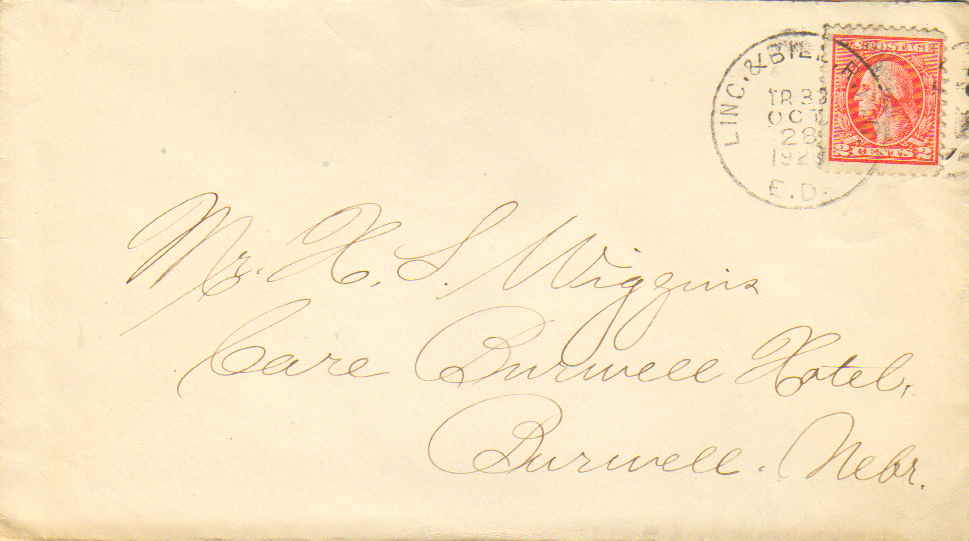 LINC. & BILL
TR 33
OCT
28
192
E.D.
POSTAGE
2 CENTS 2
Mr. H. S. Wiggins
Care Burwell Hotel,
Burwell. Nebr.